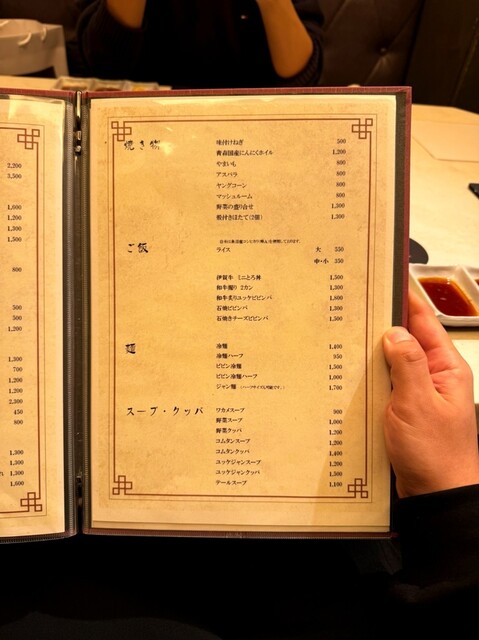 2,200
3,500
1,000
1,200
1,300
1,500
800
500
500
1,200
1,300
700
1,200
1,200
2,300
450
800
1,300
1,300
れ 1,300
1,000
焼き物
味付けねぎ 500
青森国産にんにくホイル 1,200
やまいも 800
アスパラ 800
ヤングコーン 800
マッシュルーム 800
野菜の盛り合せ 1,300
殻付きほたて(2個) 1,300
ご飯
ライス 大 550
中・小 350
伊賀牛 ミニとろ丼 1,500
和牛握り 2カン 1,300
和牛炙りユッケビビンバ 1,800
石焼ビビンバ 1,500
石焼きチーズビビンバ 1,500
麺
冷麺 1,400
冷麺ハーフ 950
ビビン冷麺 1,500
ビビン冷麺ハーフ 1,000
ジャン麺 (ハーフサイズも可能です。) 1,700
スープ・クッパ
ワカメスープ 900
野菜スープ 1,000
野菜クッパ 1,200
コムタンスープ 1,200
コムタンクッパ 1,400
ユッケジャンスープ 1,200
ユッケジャンクッパ 1,500
テールスープ 1,100